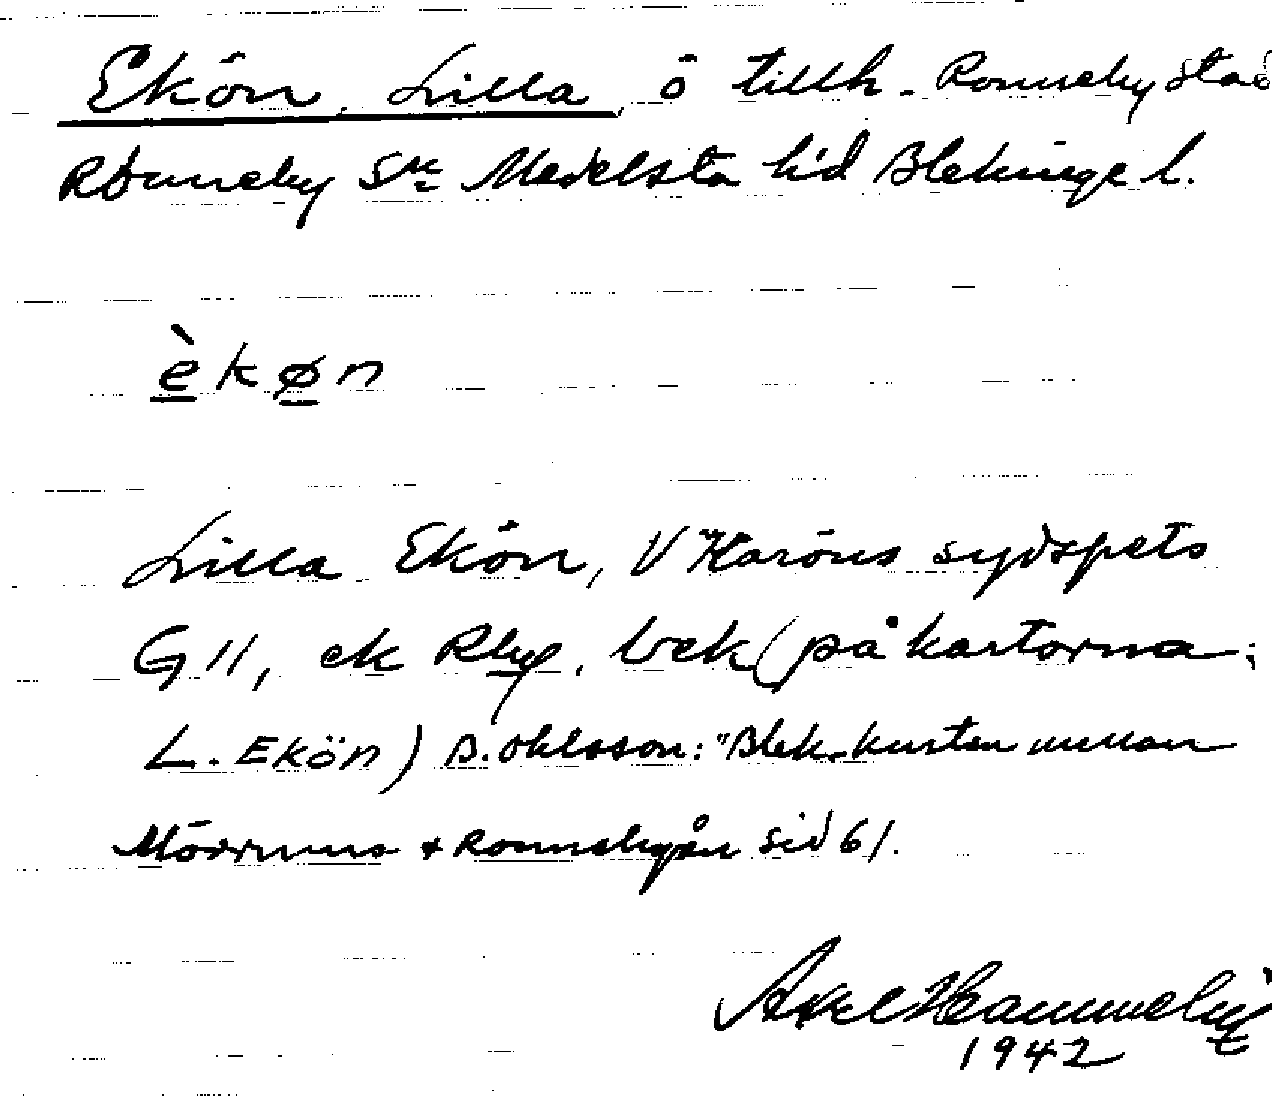 Ekön, Lilla, ö tillh. Ronneby stad
Ronneby sn Medelsta hd Blekinge l.
èkøn
Lilla Ekön, V Karöns sydspets
G 11, ek Rby. bek (på kartorna;
L. EKön) B. Ohlsson: "Blek. kusten mellan
Mörrums & Ronnebyån sid 61.
Axel
1942